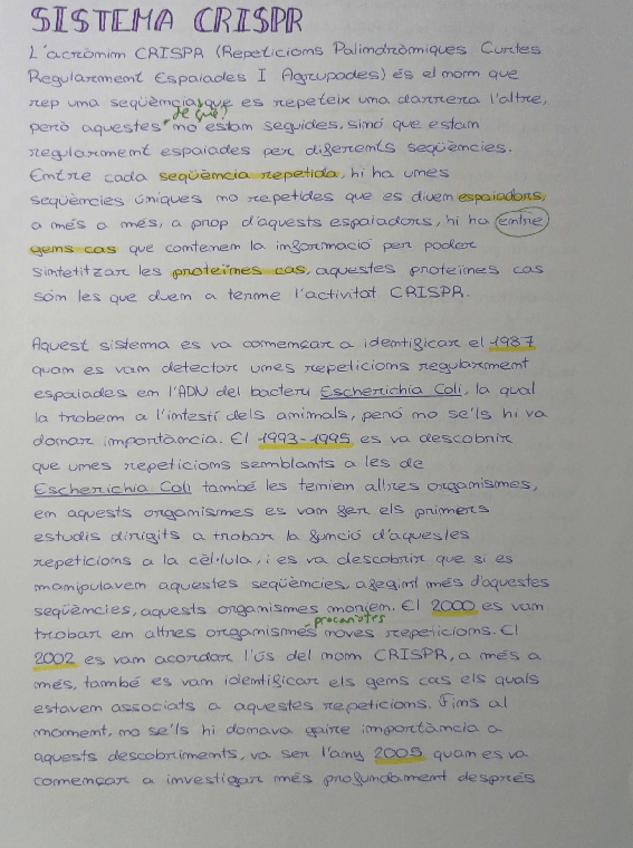 SISTEMA CRISPR
L'acrònim CRISPR (Repeticions Palindròmiques Curtes
Regularment Espaiades I Agrupades) és el nom que
rep una seqüència que es repeteix una darrera l'altre,
de què?
però aquestes no estan seguides, sinó que estan
regularment espaiades per diferents seqüències.
Entre cada seqüència repetida, hi ha unes
seqüències úniques no repetides que es diuen espaiadors,
a més a més, a prop d'aquests espaiadors, hi ha entre
gens cas que contenen la informació per poder
sintetitzar les proteïnes cas, aquestes proteïnes cas
són les que duen a terme l'activitat CRISPR.
Aquest sistema es va començar a identificar el 1987
quan es van detectar unes repeticions regularment
espaiades en l'ADN del bacteri Escherichia Coli, la qual
la trobem a l'intestí dels animals, però no se'ls hi va
donar importància. El 1993-1995 es va descobrir
que unes repeticions semblants a les de
Escherichia Coli també les tenien altres organismes,
en aquests organismes es van fer els primers
estudis dirigits a trobar la funció d'aquestes
repeticions a la cèl·lula, i es va descobrir que si es
manipulaven aquestes seqüències, afegint més d'aquestes
seqüències, aquests organismes morien. El 2000 es van
procariotes
trobar en altres organismes noves repeticions. El
2002 es van acordar l'ús del nom CRISPR, a més a
més, també es van identificar els gens cas els quals
estaven associats a aquestes repeticions. Fins al
moment, no se'ls hi donava gaire importància a
aquests descobriments, va ser l'any 2005 quan es va
començar a investigar més profundament després